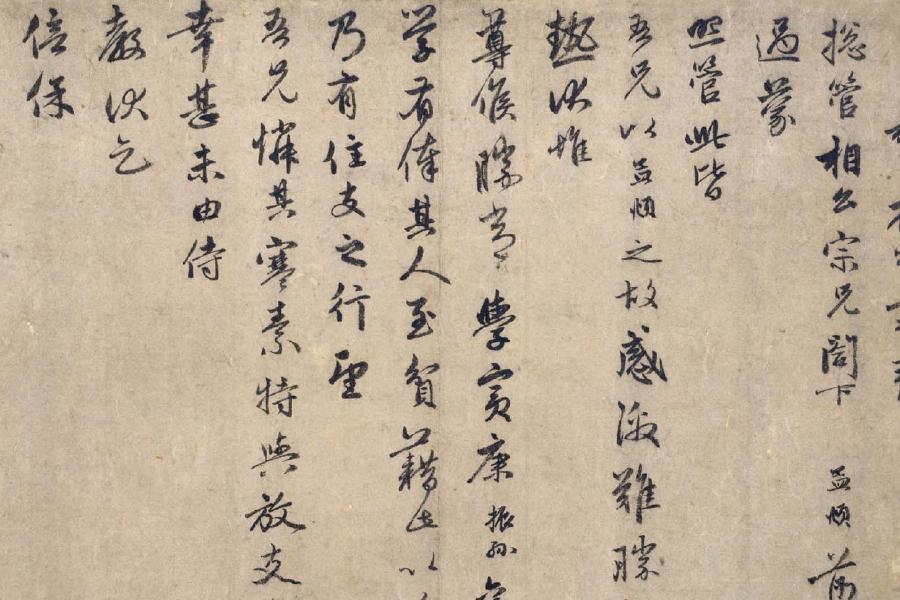 總管相公宗兄閣下 孟頫前
過蒙
照管此皆
吾兄以孟頫之故感激難勝
熱伏惟
尊候勝常 學賓康振孫
學有俸其人至貧藉此以
乃有住支之行望
吾兄憐其寒素特與放支
幸甚未由侍
教伏乞
倍保